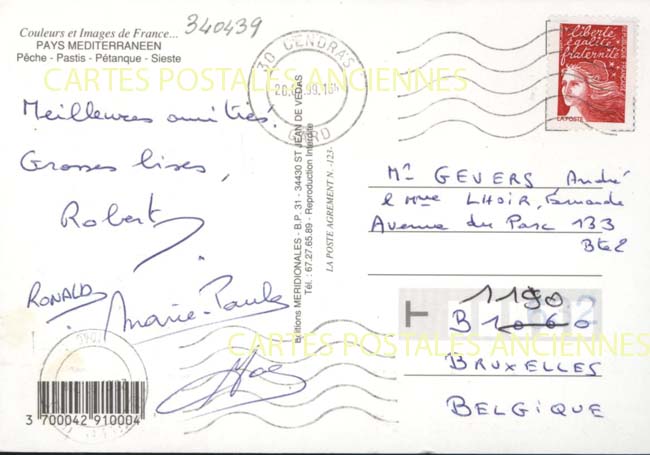 Couleurs et Images de France...
PAYS MEDITERRANEEN
Pêche - Pastis - Pétanque - Sieste
340439
CARTES POSTALES ANCIENNES
30 CENDRAS
GARD
liberté
égalité
fraternité
LA POSTE
Meilleures amitiés.
Grosses bises,
Robert
RONALD
Marie-Paule
Editions MERIDIONALES - B.P. 31 - 34430 ST JEAN DE VEDAS
Tél.: 67.27.65.89 - Reproduction Interdite
LA POSTE AGREMENT N. -123-
Mr GEVERS André
& Mme LHOIR, Fernande
Avenue du Parc 133
Bte 2
1190
T B 1060
BRUXELLES
BELGIQUE
CARTES POSTALES ANCIENNES
3 700042 910004